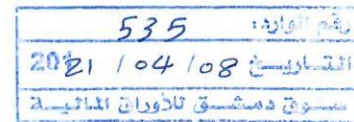 رقم الوارد: 535
التاريخ 2021 / 04 / 08
سوق دمشق للأوراق المالية